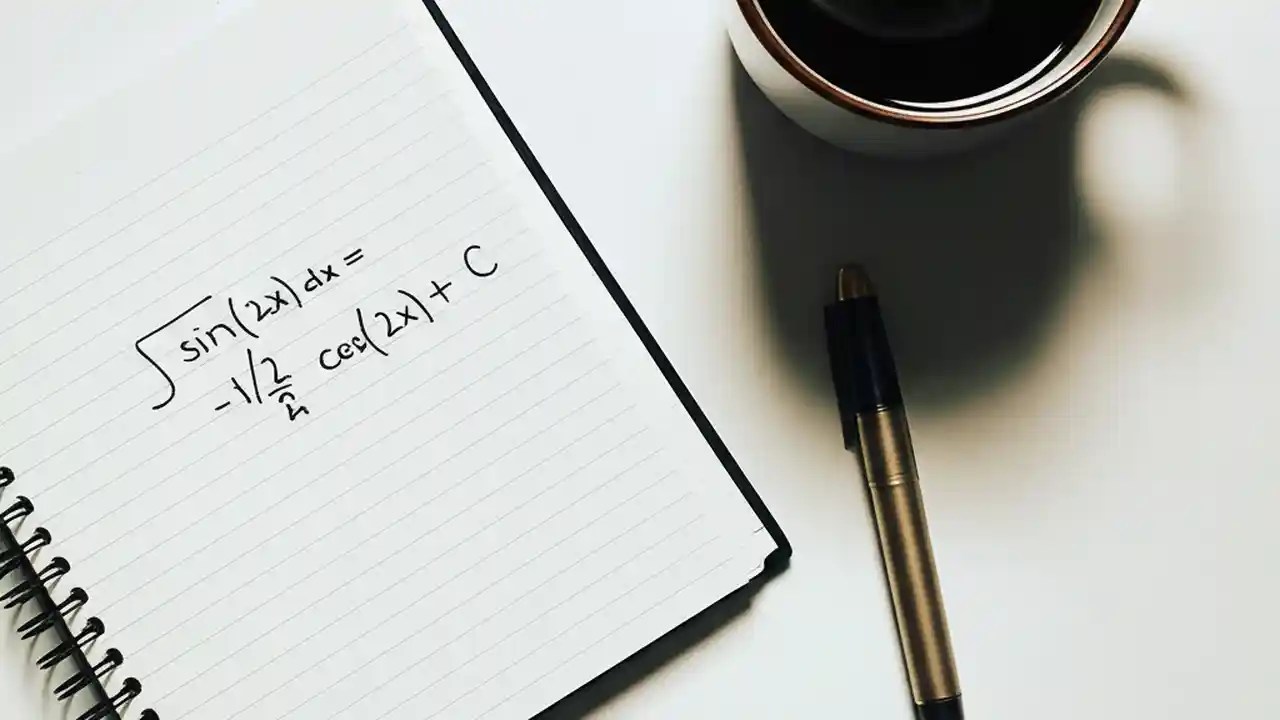 ∫ sin(2x) dx =
-1/2 cos(2x) + C